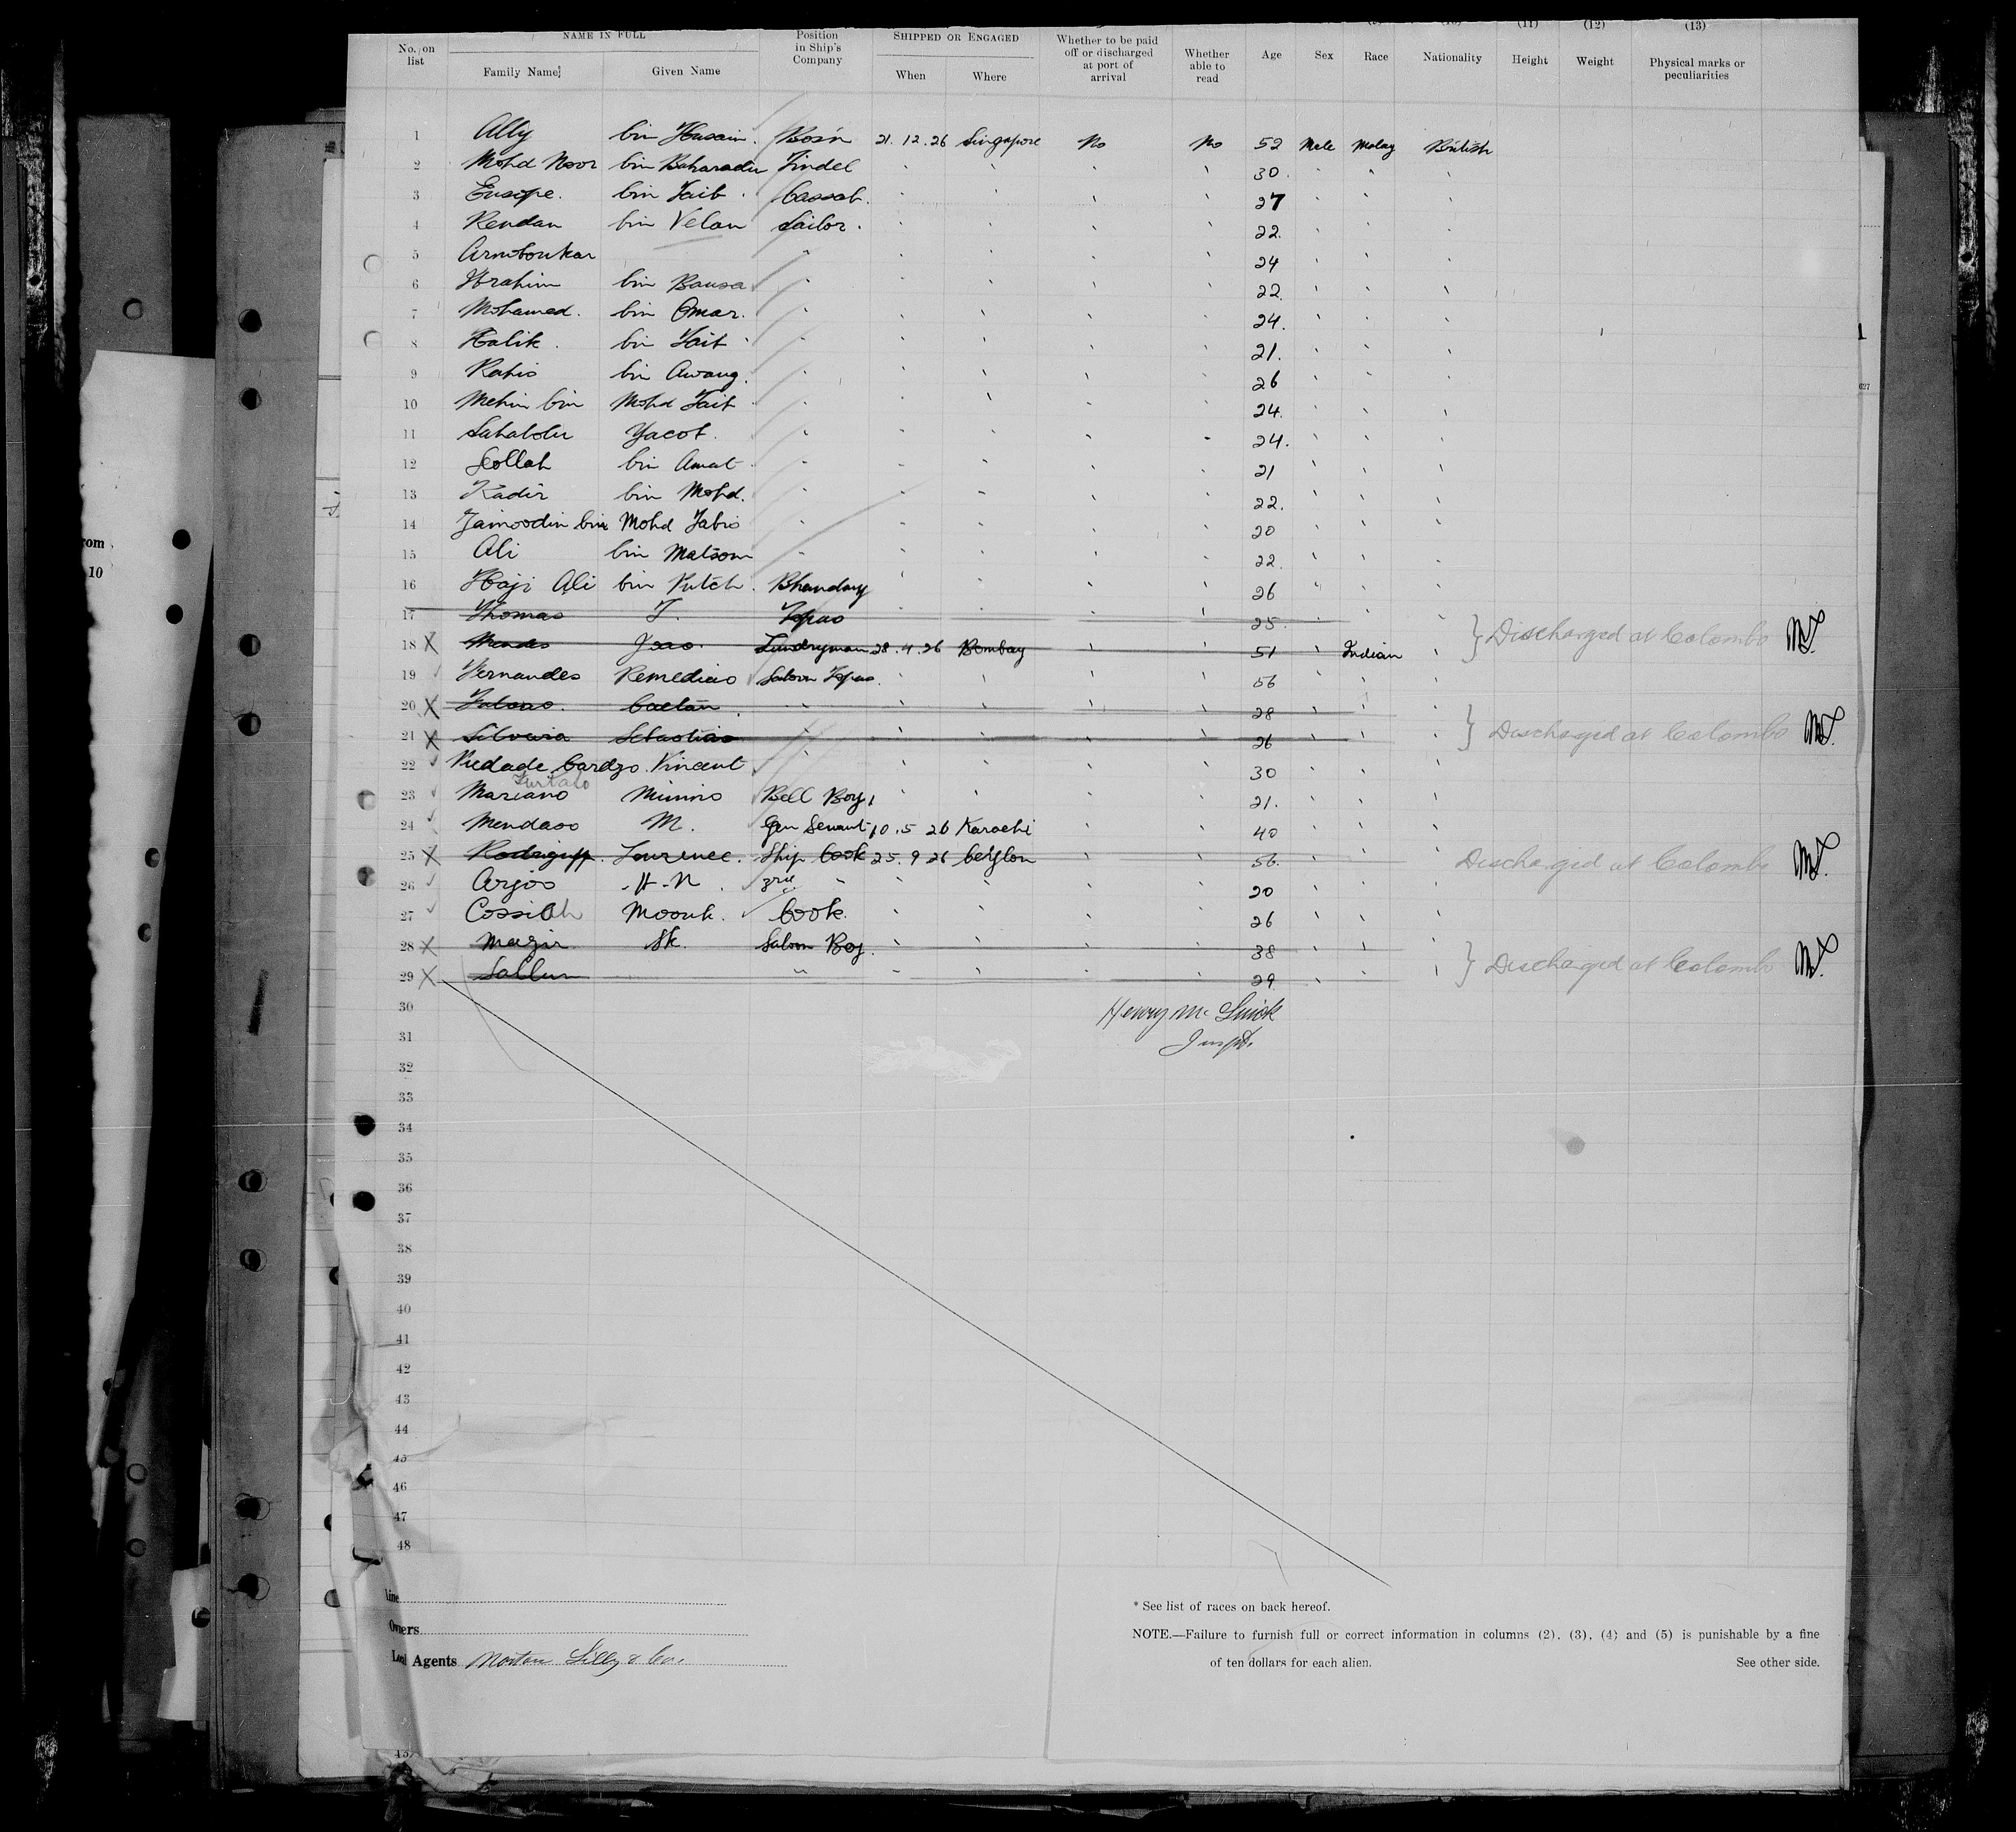 (11) (12) (13)
No. on list NAME IN FULL Position in Ship's Company SHIPPED OR ENGAGED Whether to be paid off or discharged at port of arrival Whether able to read Age Sex Race Nationality Height Weight Physical marks or peculiarities
Family Name Given Name When Where
1 Ally bin Husain. Bos'n 21.12.26 Singapore No No 52 Male Malay British
2 Mohd Noor bin Baharadin Tindel 30.
3 Eusope. bin Taib Cassab. 27
4 Rendan bin Velan Sailor. 22.
5 Armboukar " 24
6 Ibrahim bin Bausa " 22.
7 Mohamed. bin Omar. " 24.
8 Halik. bin Taib " 21.
9 Rapis bin Awang. " 26
10 Mehin bin Mohd Taib " 24.
11 Sahabdu Yacob. " 24.
12 Seollah bin Amat " 21
13 Kadir bin Mohd. " 22.
14 Jainoodin bin Mohd Tabis " 20
15 Ali bin Matsom " 22.
16 Haji Ali bin Putch. Bhandary 26
17 Thomas T. Topas 25.
18 X Mendes Joao. Lundryman 28.4.26 Bombay 51 Indian } Discharged at Colombo
19 Fernandes Remedios Saloon Topas. 56
20 X Caetan. " 28
21 X Silveira Sebastiao " 26 } Discharged at Colombo
22 Piedade Cardzo. Vincent " 30
Furtado
23 Mariano Minino Bell Boy, 21.
24 Mendaso M. Gen Servant 10.5 26 Karachi 40
25 X Lourence. Ship Cook 25.9 26 Ceylon 56. Discharged at Colombo
26 Arjos H-N. 3rd " 20
27 Cossiah Moonk. Cook. 26
28 X Magir Sk. Saloon Boy. 38
29 X Sallun " 29 } Discharged at Colombo
30 Henry Mc
31 Inspt.
32
33
34
35
36
37
38
39
40
41
42
43
44
45
46
47
48
Line
Owners
Local Agents Morton Lilly & Co.
* See list of races on back hereof.
NOTE.—Failure to furnish full or correct information in columns (2), (3), (4) and (5) is punishable by a fine
of ten dollars for each alien. See other side.
rom
10
627